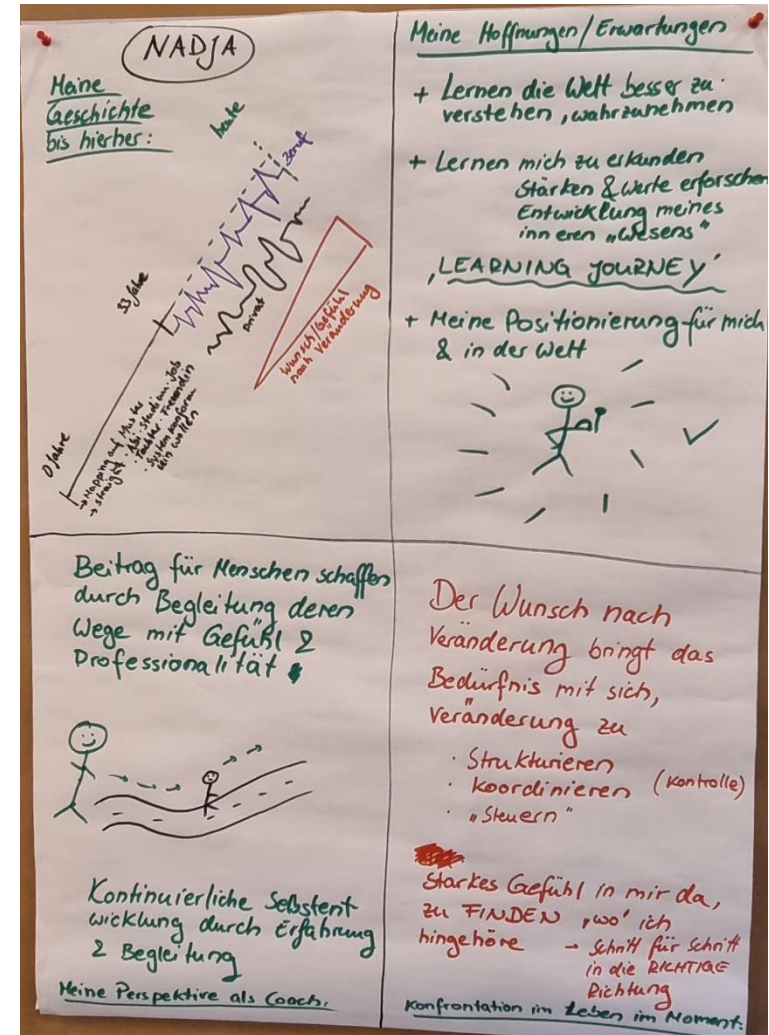 NADJA
Meine
Geschichte
bis hierher:
heute
Beruf
33 Jahre
Privat
Wunsch/Gefühl
nach Veränderung
0 Jahre
→ Mapping auf Muster
→ straight · Abi · Studium · Job
· Tochter · Freundin
· systemkonform
sein wollen
Meine Hoffnungen/Erwartungen
+ Lernen die Welt besser zu
verstehen, wahrzunehmen
+ Lernen mich zu erkunden
Stärken & Werte erforschen
Entwicklung meines
inneren „Wesens"
‚LEARNING JOURNEY'
+ Meine Positionierung für mich
& in der Welt
Beitrag für Menschen schaffen
durch Begleitung deren
Wege mit Gefühl &
Professionalität
Kontinuierliche Selbstent
wicklung durch Erfahrung
& Begleitung
Meine Perspektive als Coach:
Der Wunsch nach
Veränderung bringt das
Bedürfnis mit sich,
Veränderung zu
· Strukturieren
· koordinieren (Kontrolle)
· „Steuern"
Starkes Gefühl in mir da,
zu FINDEN ‚wo' ich
hingehöre → Schritt für Schritt
in die RICHTIGE
Richtung
Konfrontation im Leben im Moment: